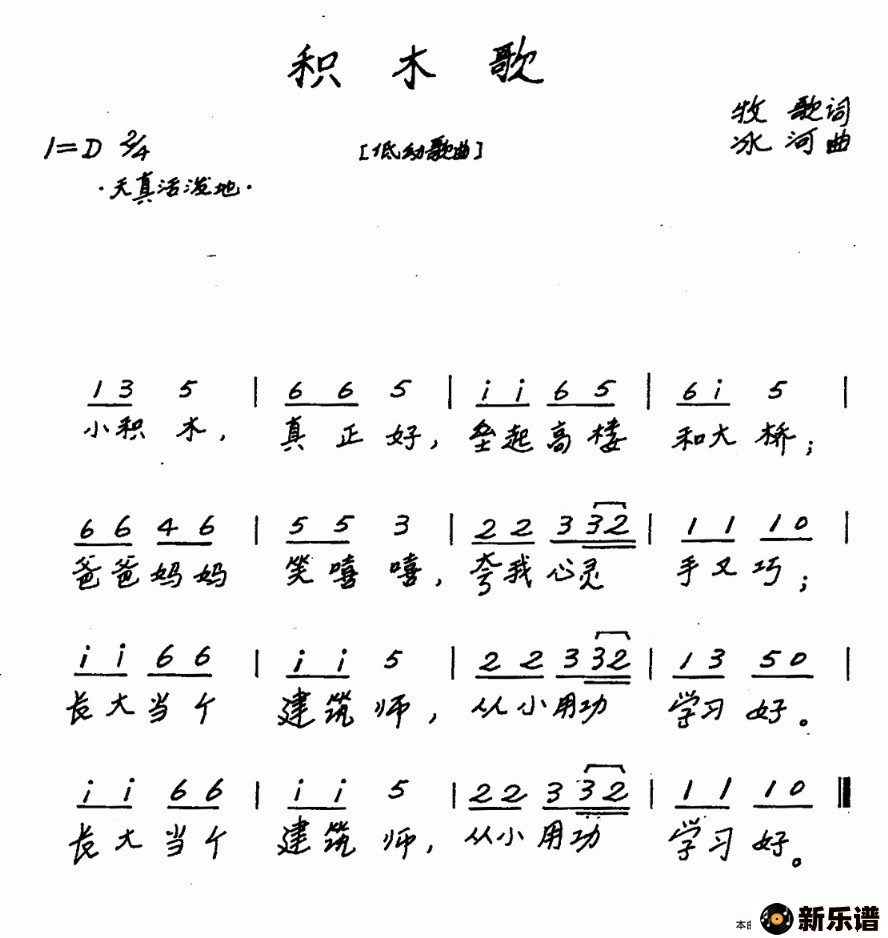 积木歌
牧歌词
1=D 2/4 [低幼歌曲] 冰河曲
·天真活泼地·
1 3 5 | 6 6 5 | i i 6 5 | 6 i 5 |
小积木，真正好，垒起高楼和大桥；
6 6 4 6 | 5 5 3 | 2 2 3 3 2 | 1 1 1 0 |
爸爸妈妈笑嘻嘻，夸我心灵手又巧；
i i 6 6 | i i 5 | 2 2 3 3 2 | 1 3 5 0 |
长大当个建筑师，从小用功学习好。
i i 6 6 | i i 5 | 2 2 3 3 2 | 1 1 1 0 ‖
长大当个建筑师，从小用功学习好。
本 新乐谱